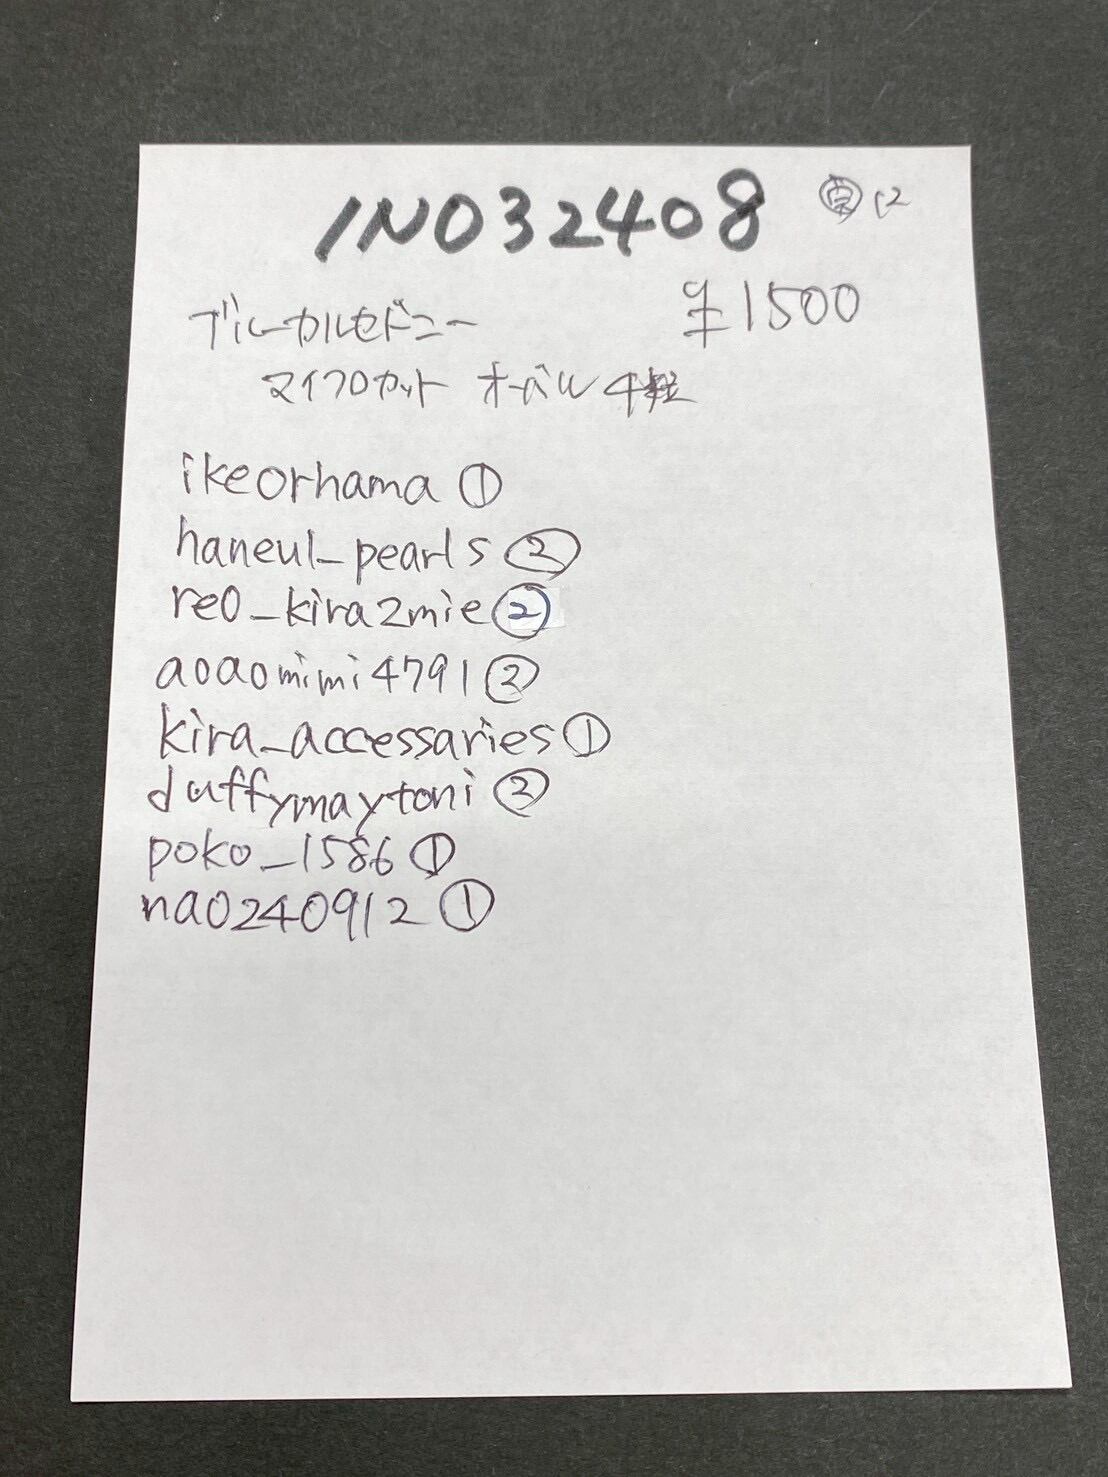 INO32408
¥1500
ブルーカルセドニー
マイクロカット オーバル 4粒
ikeorhama ①
haneul_pearls ②
reo_kira2mie ②
aoaomimi4791 ②
kira_accessaries ①
duffymaytoni ②
poko_1586 ①
nao240912 ①